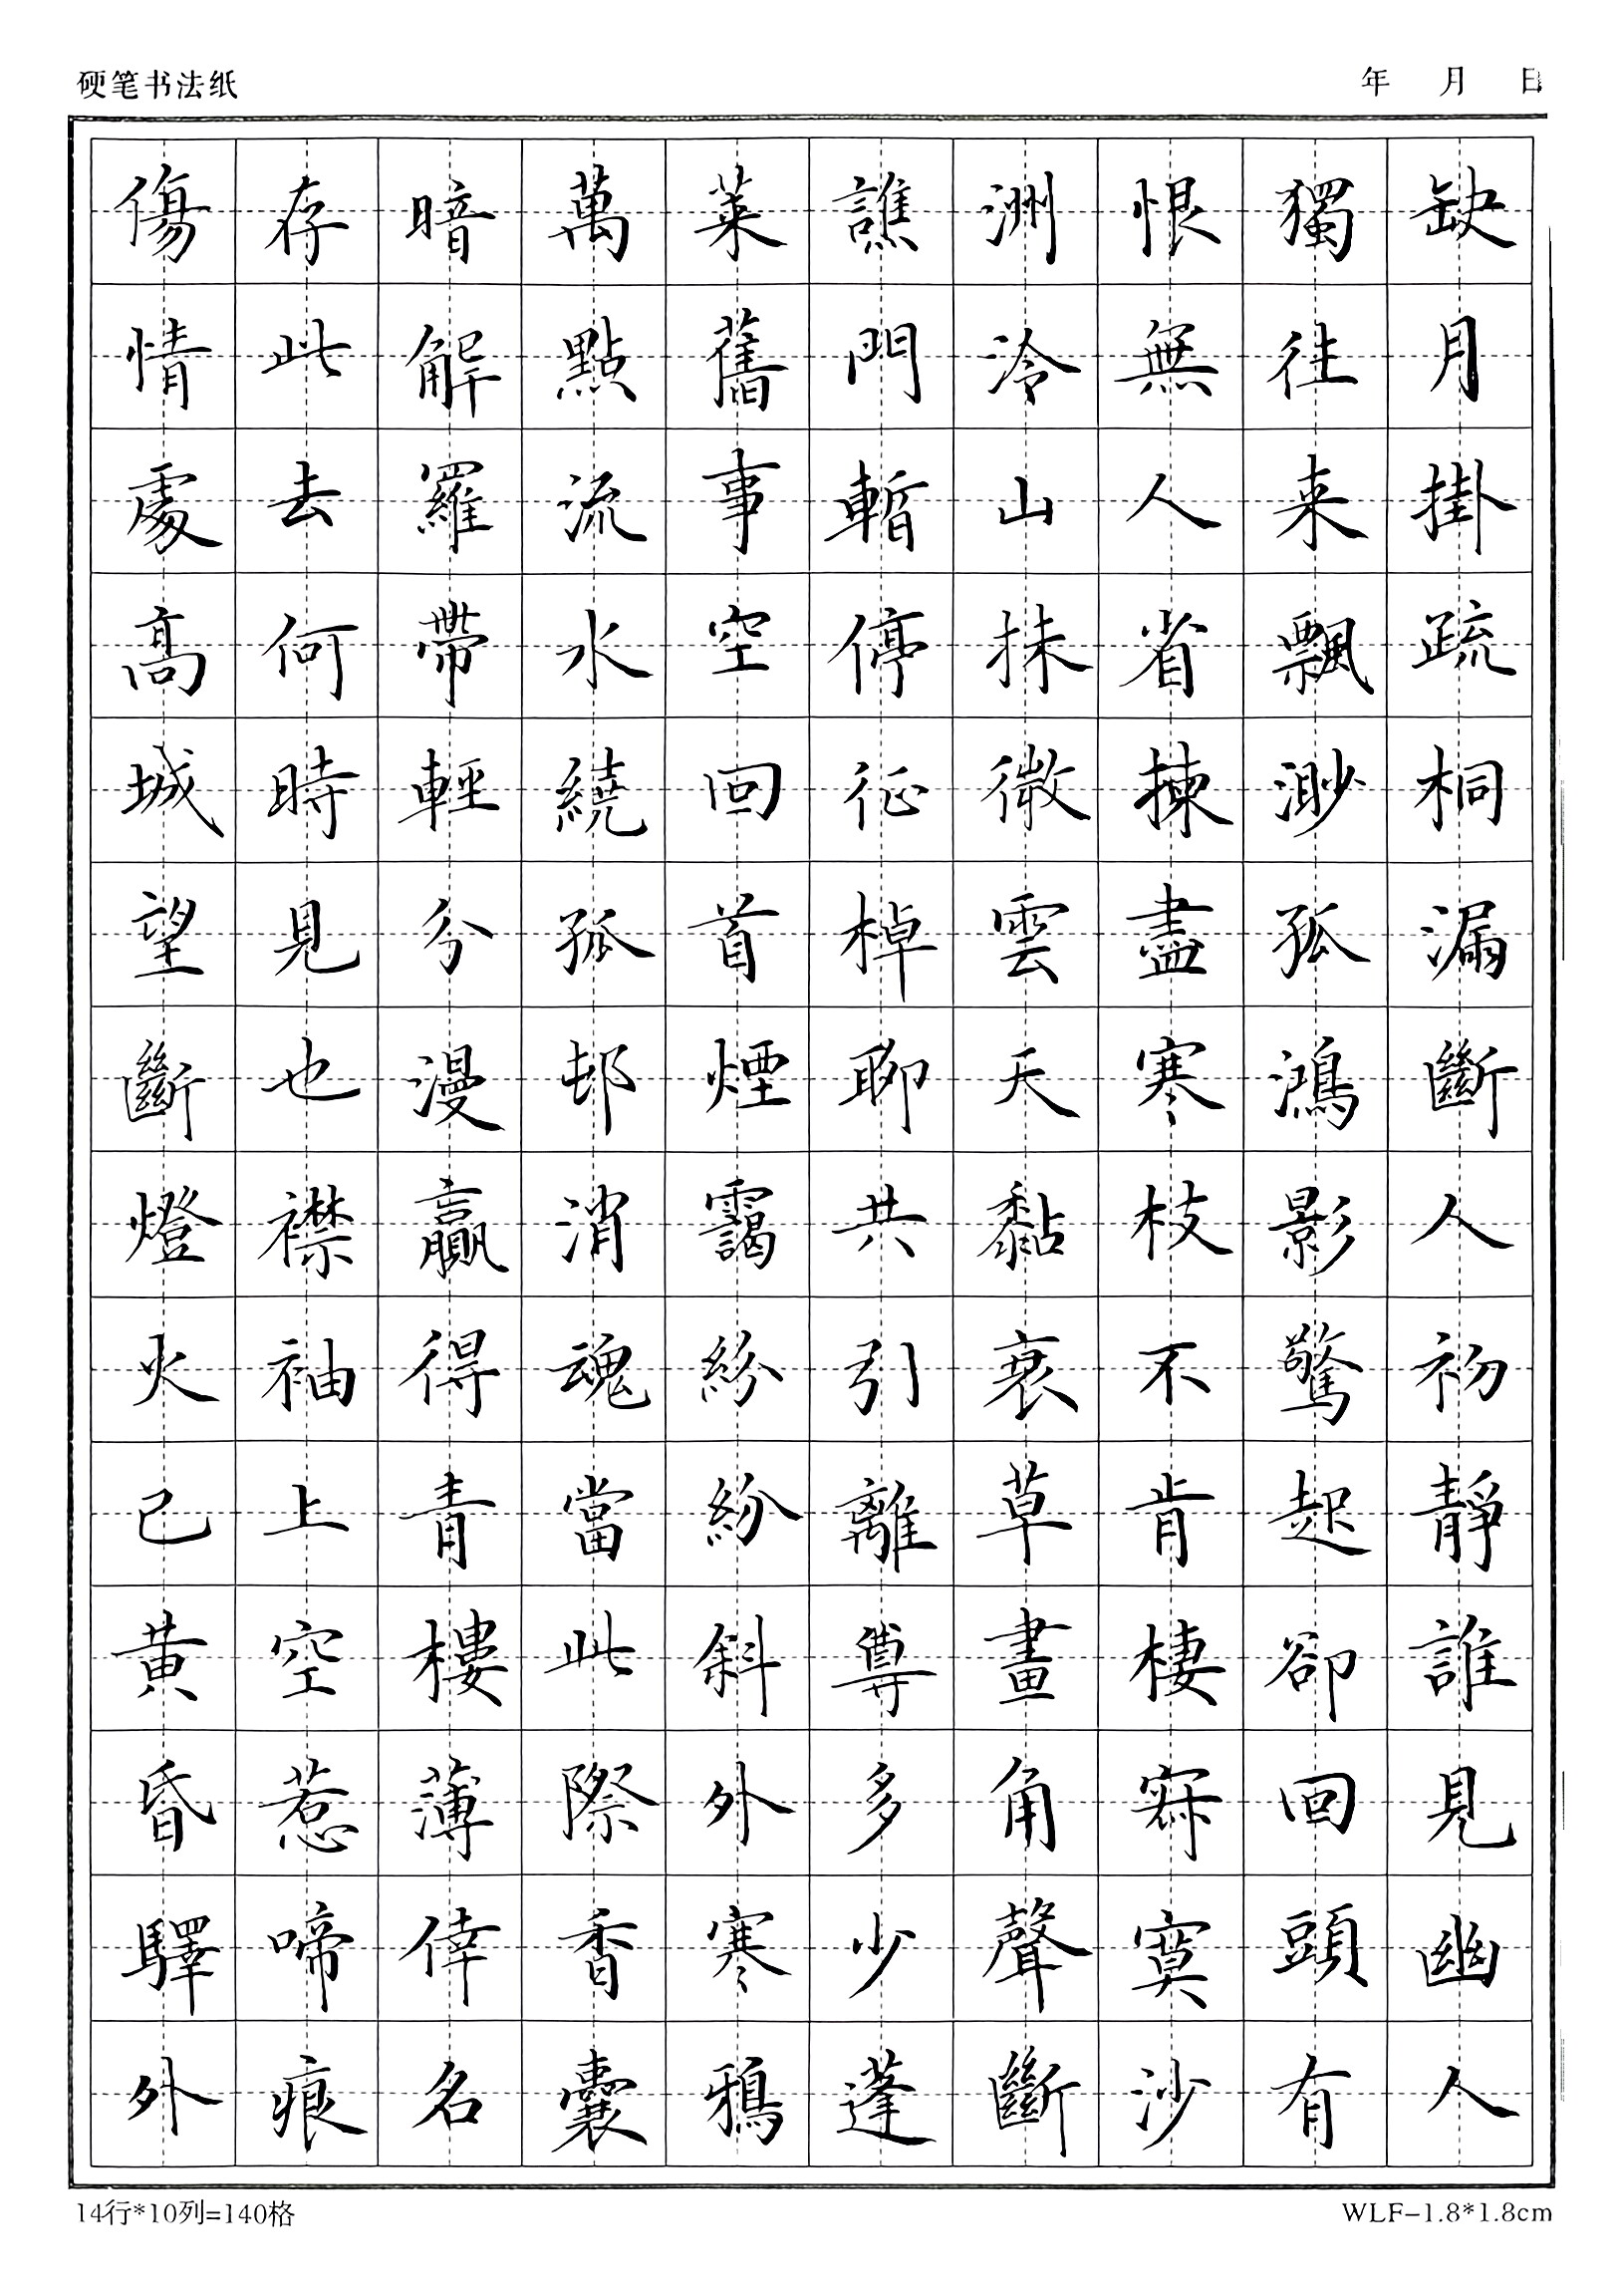 硬笔书法纸
年 月 日
缺月掛疏桐漏斷人初靜誰見幽人
獨往来飄渺孤鴻影驚起卻回頭有
恨無人省揀盡寒枝不肯棲寂寞沙
洲冷山抹微雲天黏衰草畫角聲斷
譙門暫停征棹聊共引離尊多少蓬
萊舊事空回首煙靄紛紛斜外寒鴉
萬點流水繞孤邨消魂當此際香囊
暗解羅帶輕分漫贏得青樓薄倖名
存此去何時見也襟袖上空惹啼痕
傷情處高城望斷燈火已黄昏驛外
14行*10列=140格
WLF-1.8*1.8cm